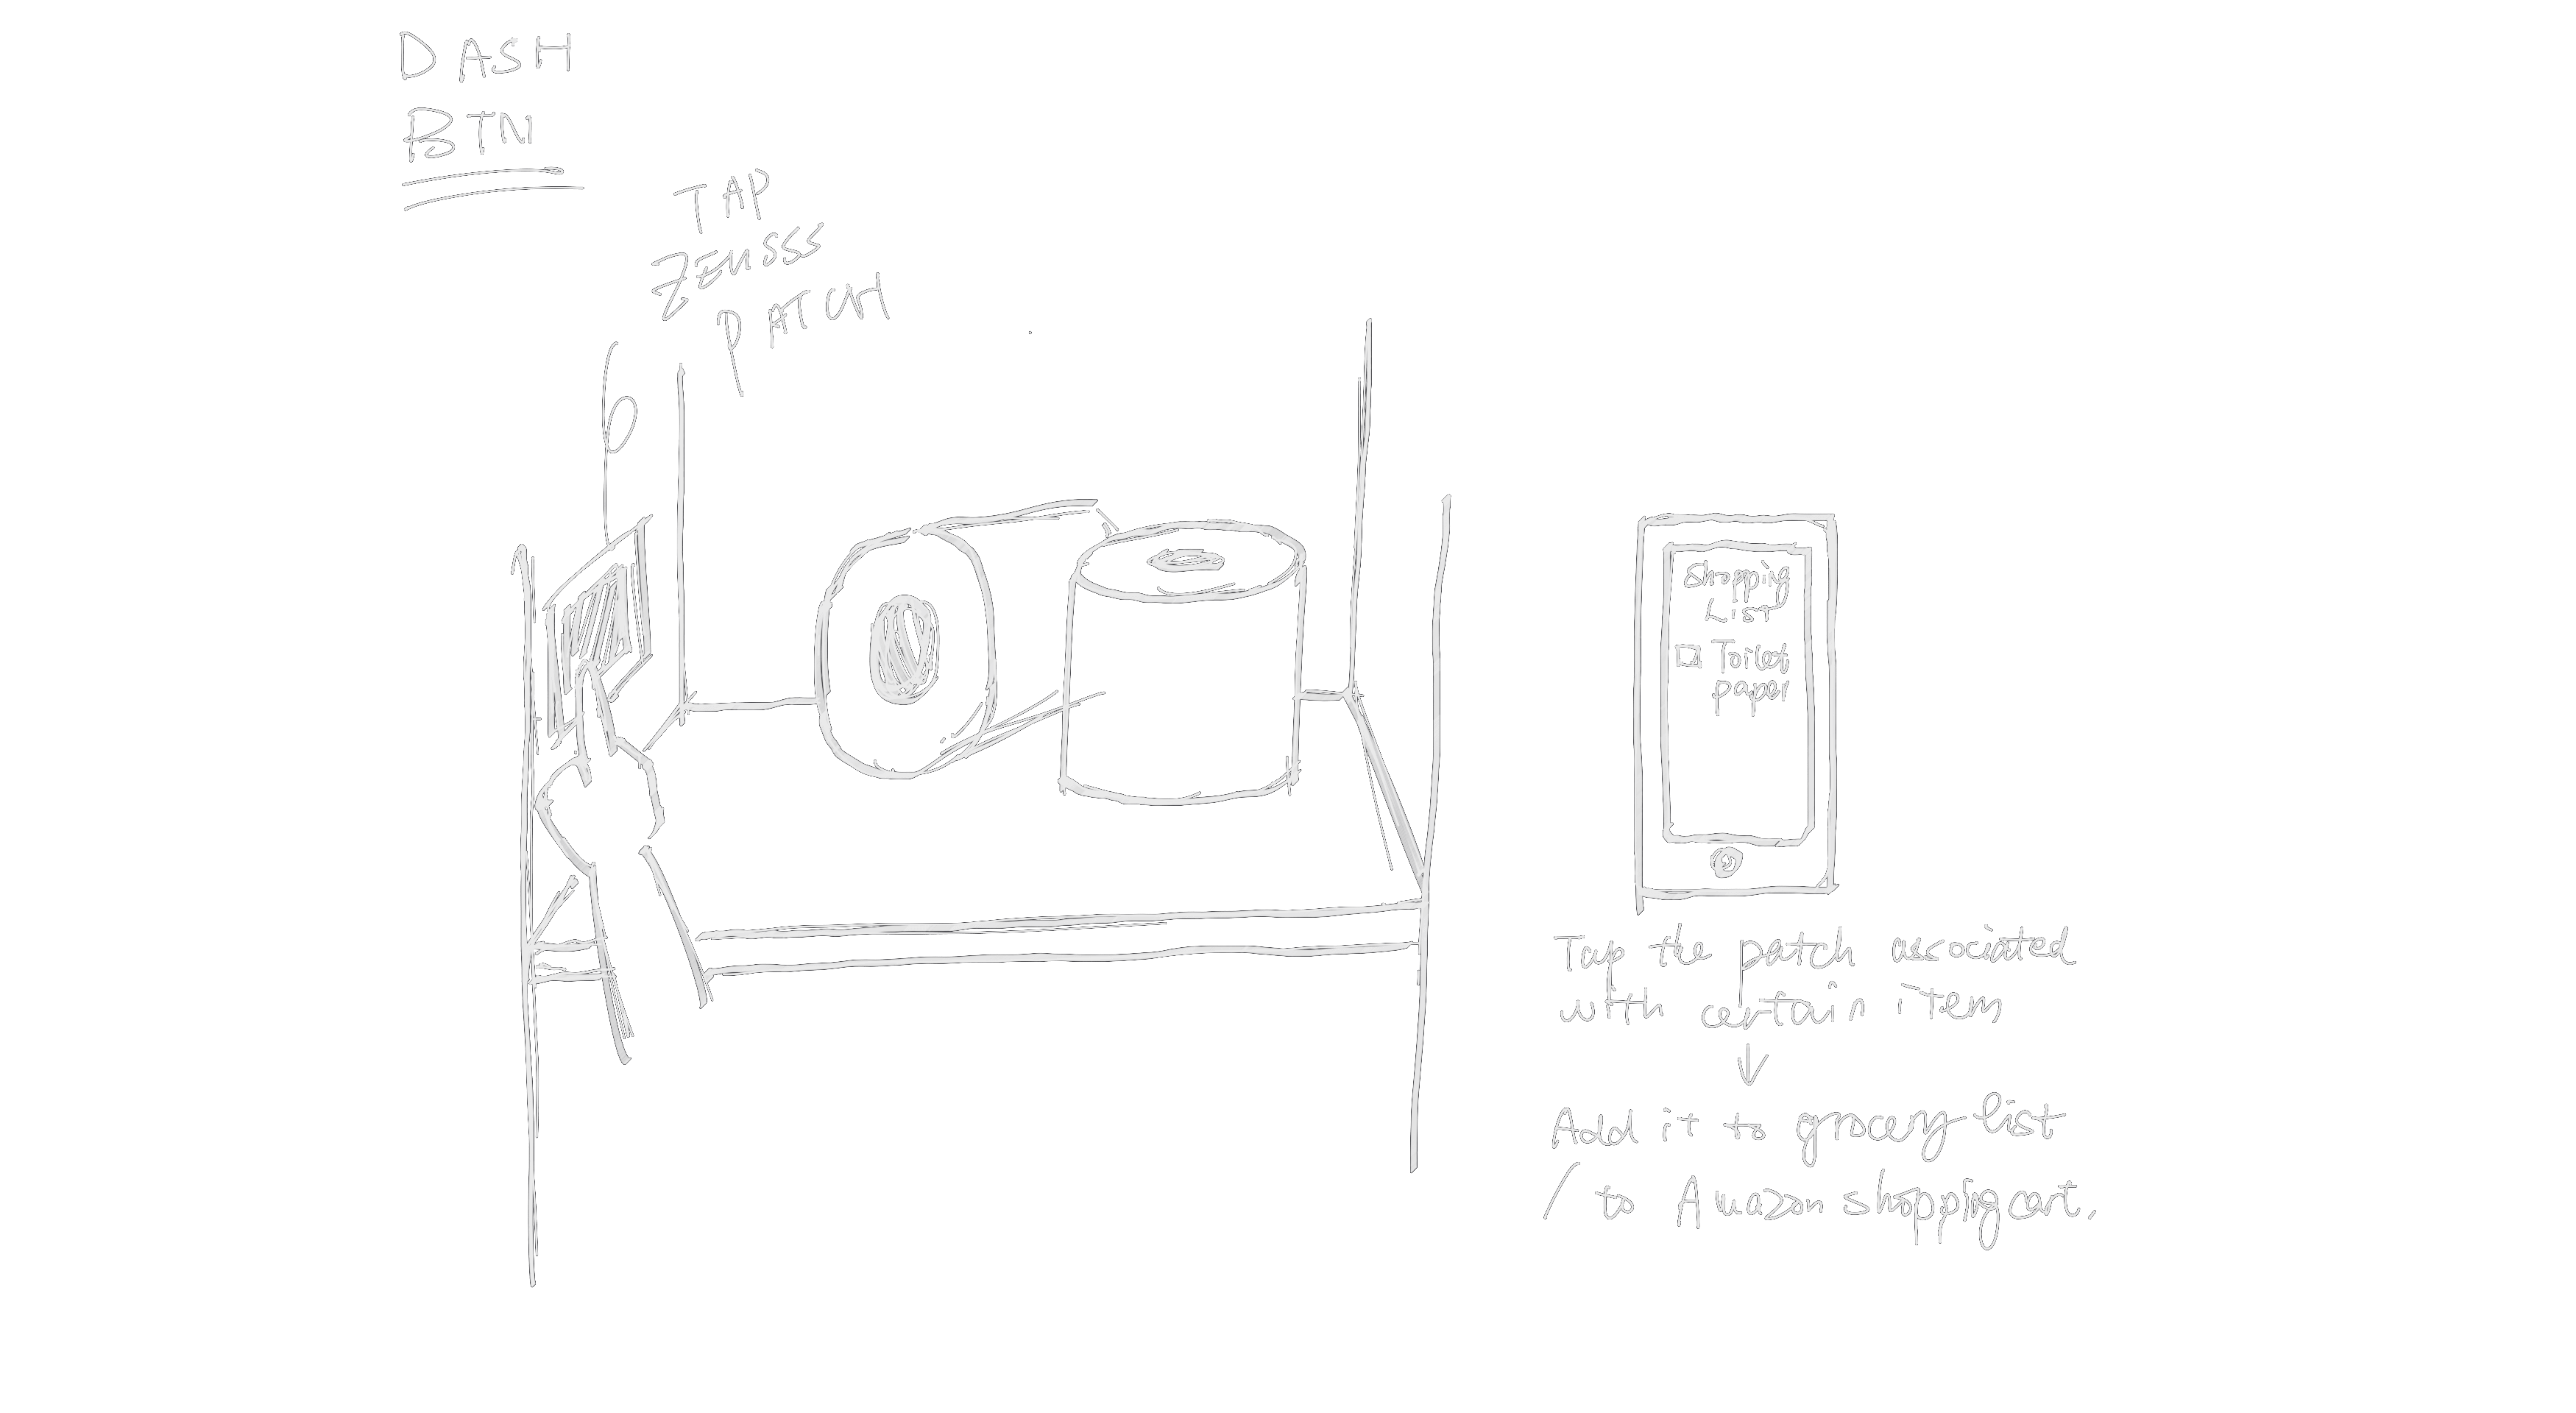 DASH
BTN
TAP
ZEUSSS
PATCH
Shopping
List
Toilet
paper
Tap the patch associated
with certain item
↓
Add it to grocery list
/ to Amazon shopping cart.